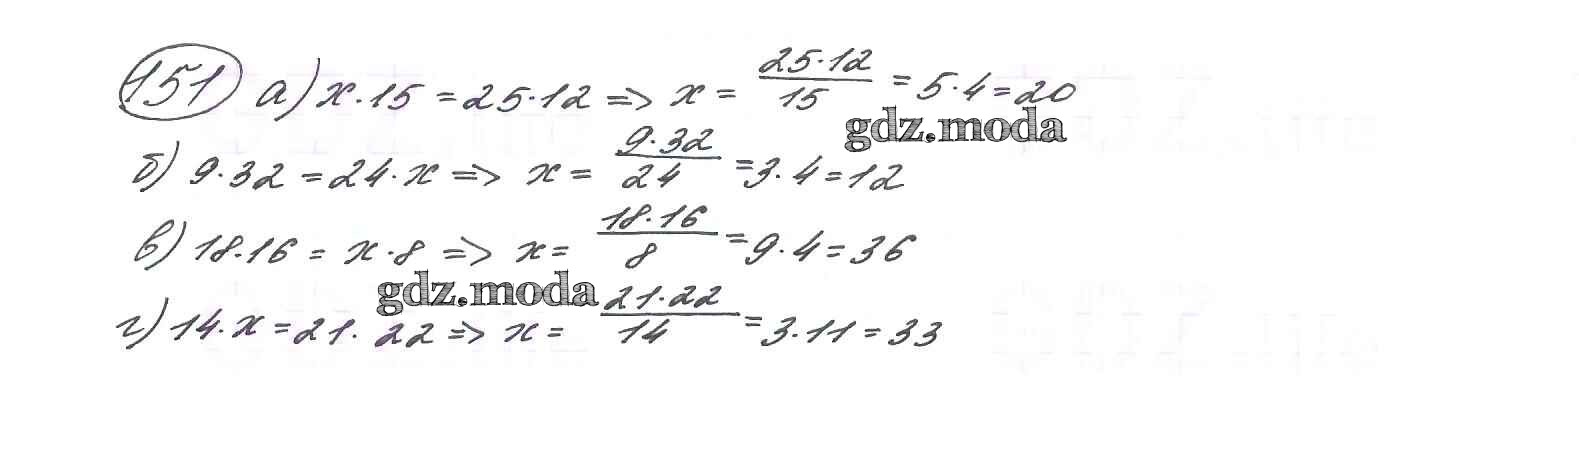 151 а) x·15 = 25·12 => x = 25·12/15 = 5·4 = 20
gdz.moda
б) 9·32 = 24·x => x = 9·32/24 = 3·4 = 12
в) 18·16 = x·8 => x = 18·16/8 = 9·4 = 36
gdz.moda
г) 14·x = 21·22 => x = 21·22/14 = 3·11 = 33